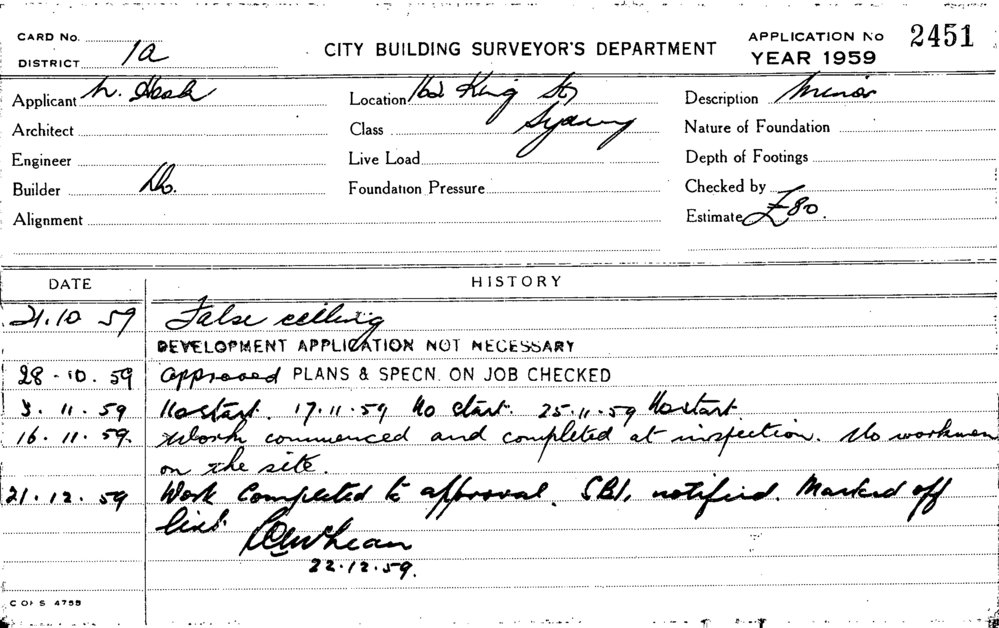 CARD No.
DISTRICT 1a
CITY BUILDING SURVEYOR'S DEPARTMENT
APPLICATION No 2451
YEAR 1959
Applicant
Location 162 King St
Description Minor
Architect
Class Sydney
Nature of Foundation
Engineer
Live Load
Depth of Footings
Builder Do.
Foundation Pressure
Checked by
Alignment
Estimate £80.
DATE HISTORY
21.10 59 False ceiling
DEVELOPMENT APPLICATION NOT NECESSARY
28-10.59 approved PLANS & SPECN. ON JOB CHECKED
3.11.59 No start. 17.11.59 No start. 25.11.59 No start
16.11.59. Work commenced and completed at inspection. No workmen
on the site.
21.12.59 Work Completed to approval. notified. Marked off
list.
22.12.59.